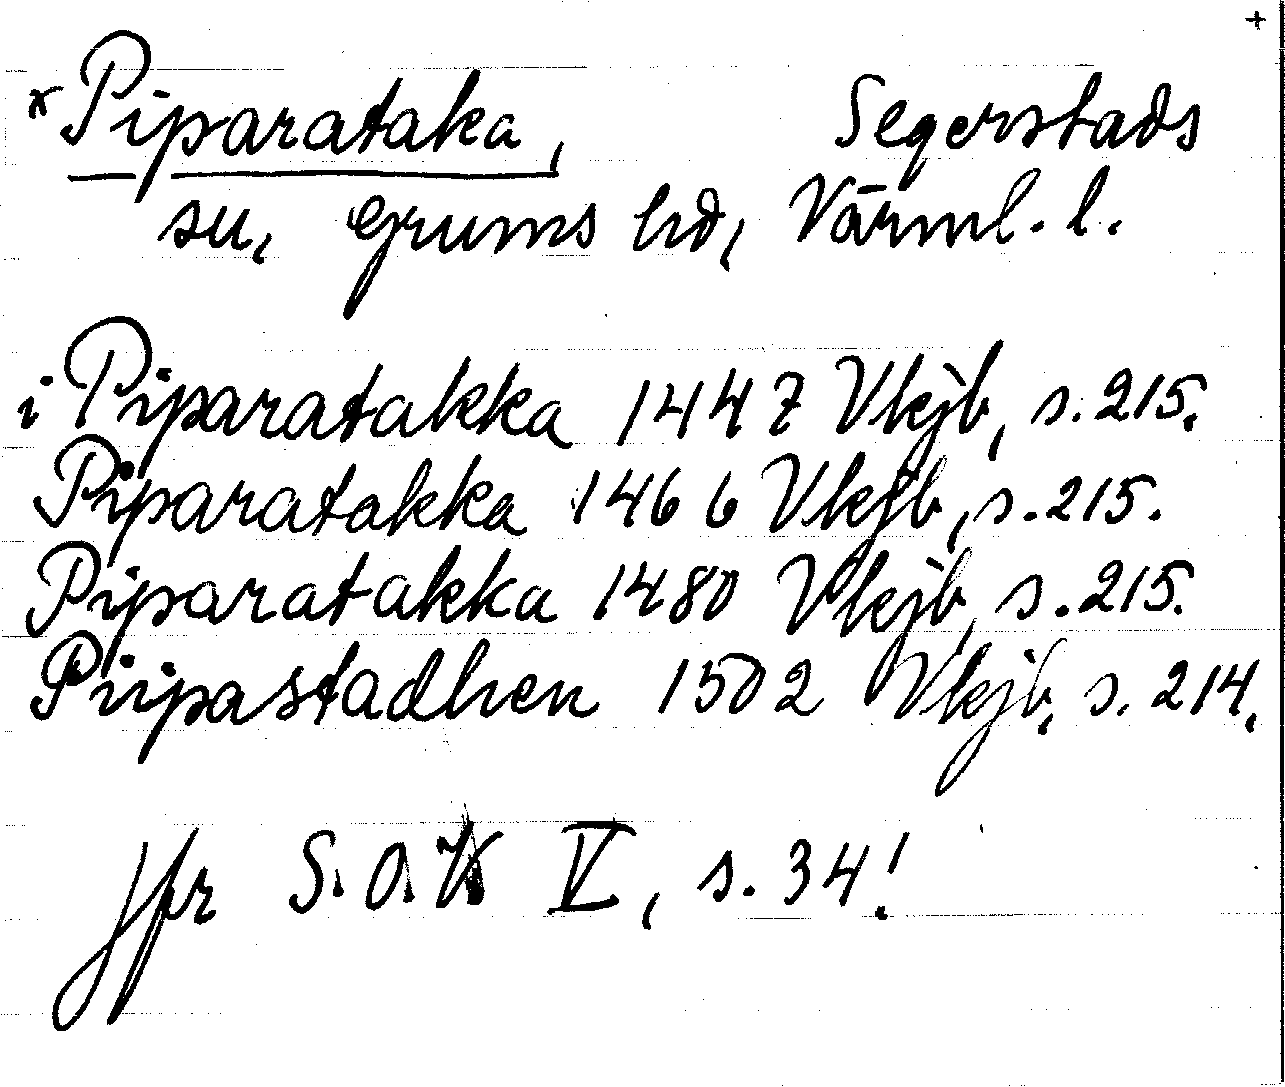 +
*Piparataka, Segerstads
sn, Grums hd, Värml. l.
i Piparatakka 1447 Vkjb, s. 215.
Piparatakka 1466 Vkjb, s. 215.
Piparatakka 1480 Vkjb, s. 215.
Piipastadhen 1502 Vkjb, s. 214.
Jfr S.O.V V, s. 34!